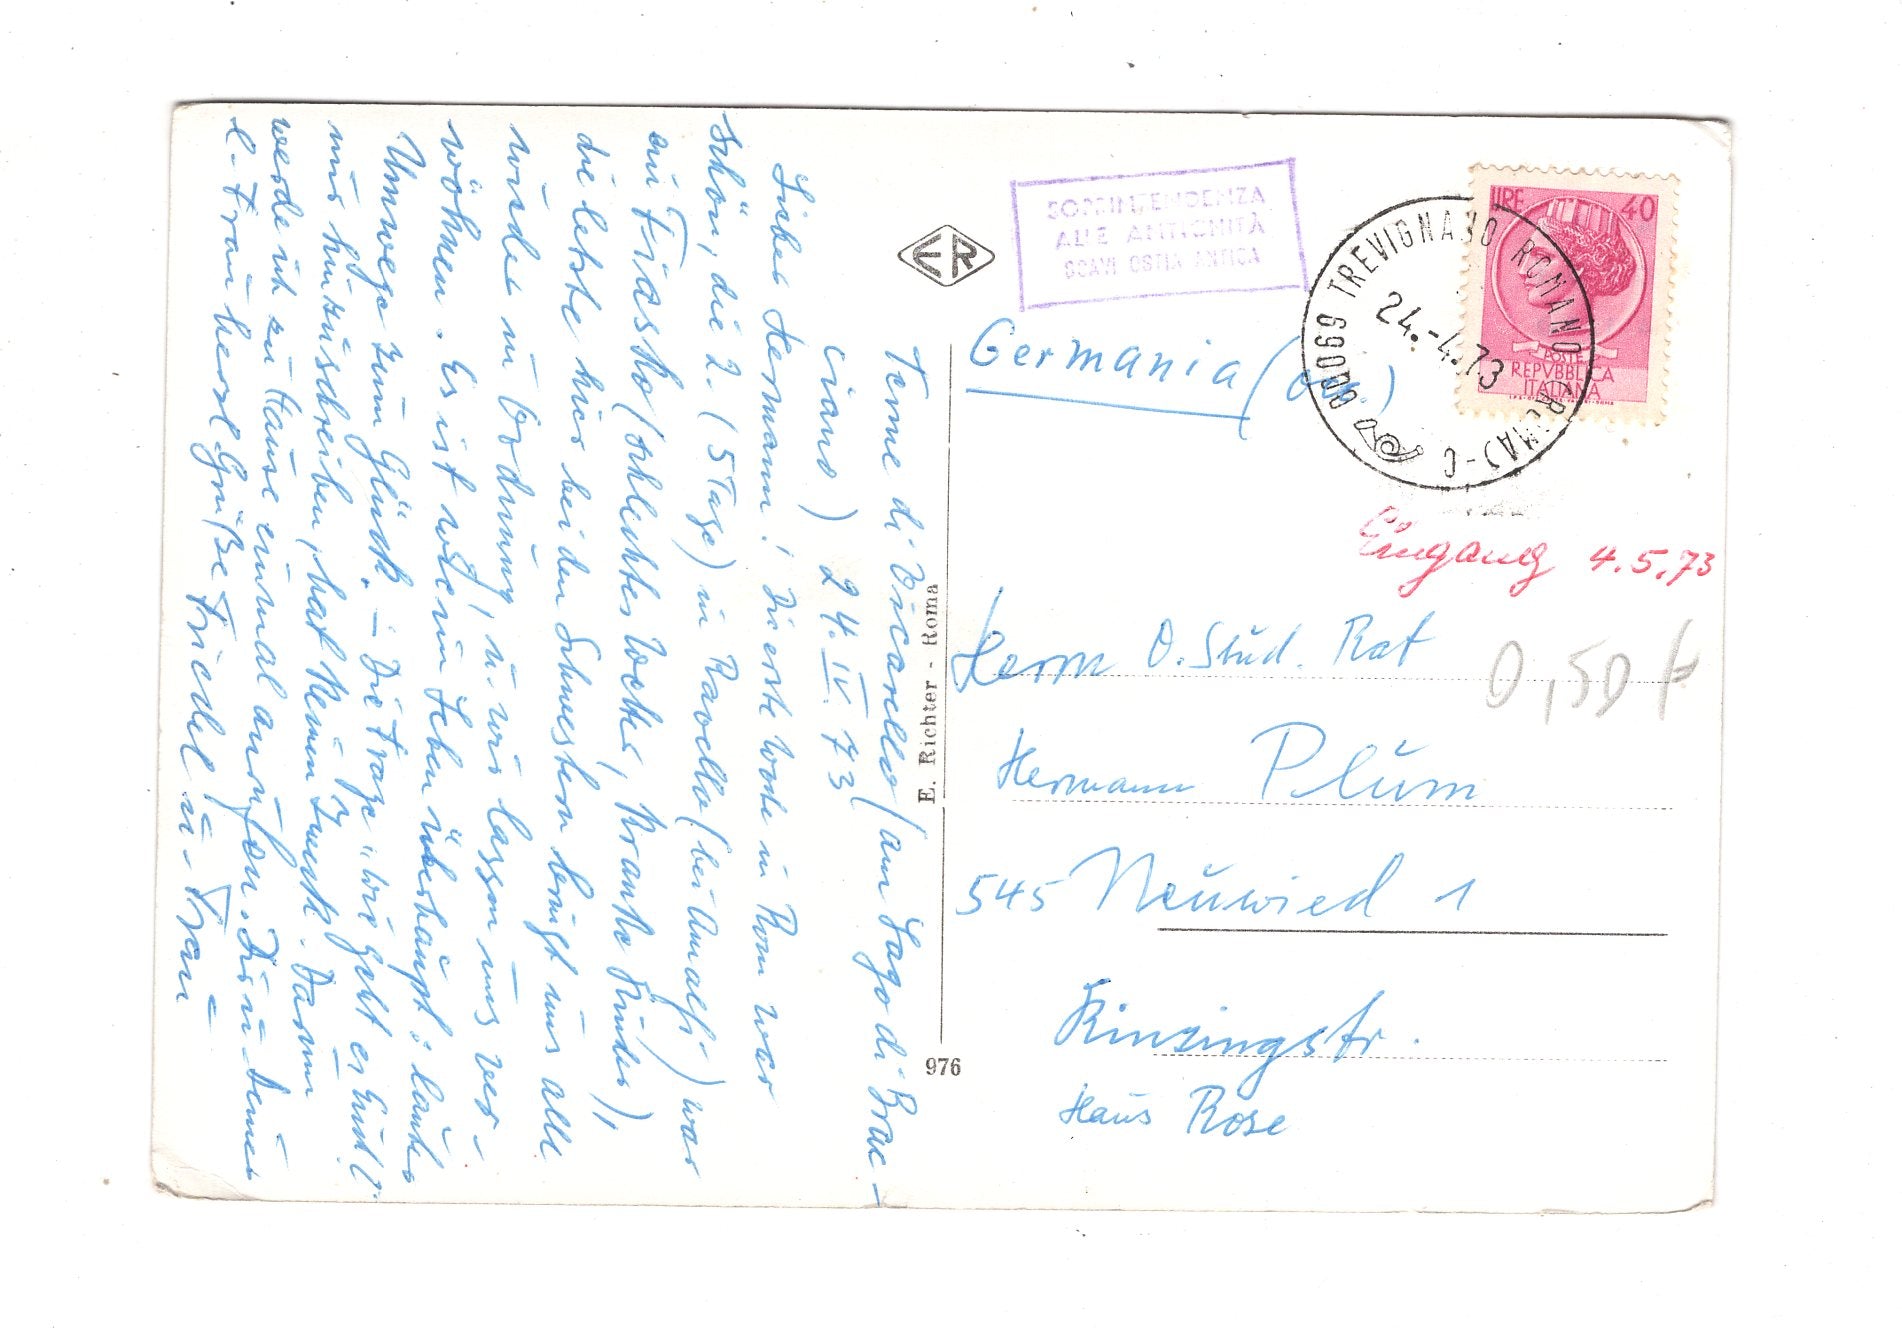 Terme di Vicarello (am Lago di Brac-
ciano) 24. IV. 73
Lieber Hermann! Die erste Woche in Rom war
schön, die 2. (5 Tage) in Ravello (bei Amalfi) war
ein Fiasko (schlechtes Wetter, kranke Kinder),
die letzte hier bei den Schwestern bringt uns alle
wieder in Ordnung, u. wir lassen uns ver-
wöhnen. Es ist wie im Leben überhaupt: lauter
Umwege zum Glück. – Die Frage „wie geht es Euch?“
uns hinzuschreiben, hat keinen Zweck. Darum
werde ich zu Hause einmal anrufen. Dir u. Deiner
l. Frau herzl. Grüße Friedel u. Frau
ER
E. Richter - Roma
976
SOPRINTENDENZA
ALLE ANTICHITÀ
SCAVI OSTIA ANTICA
LIRE 40
POSTE
REPVBBLICA
ITALIANA
00069 TREVIGNANO ROMANO (ROMA)-C
24.-4.73
Germania
Eingang 4.5.73
Herrn O. Stud. Rat
0,50
Hermann Plum
545 Neuwied 1
Kinzingstr.
Haus Rose